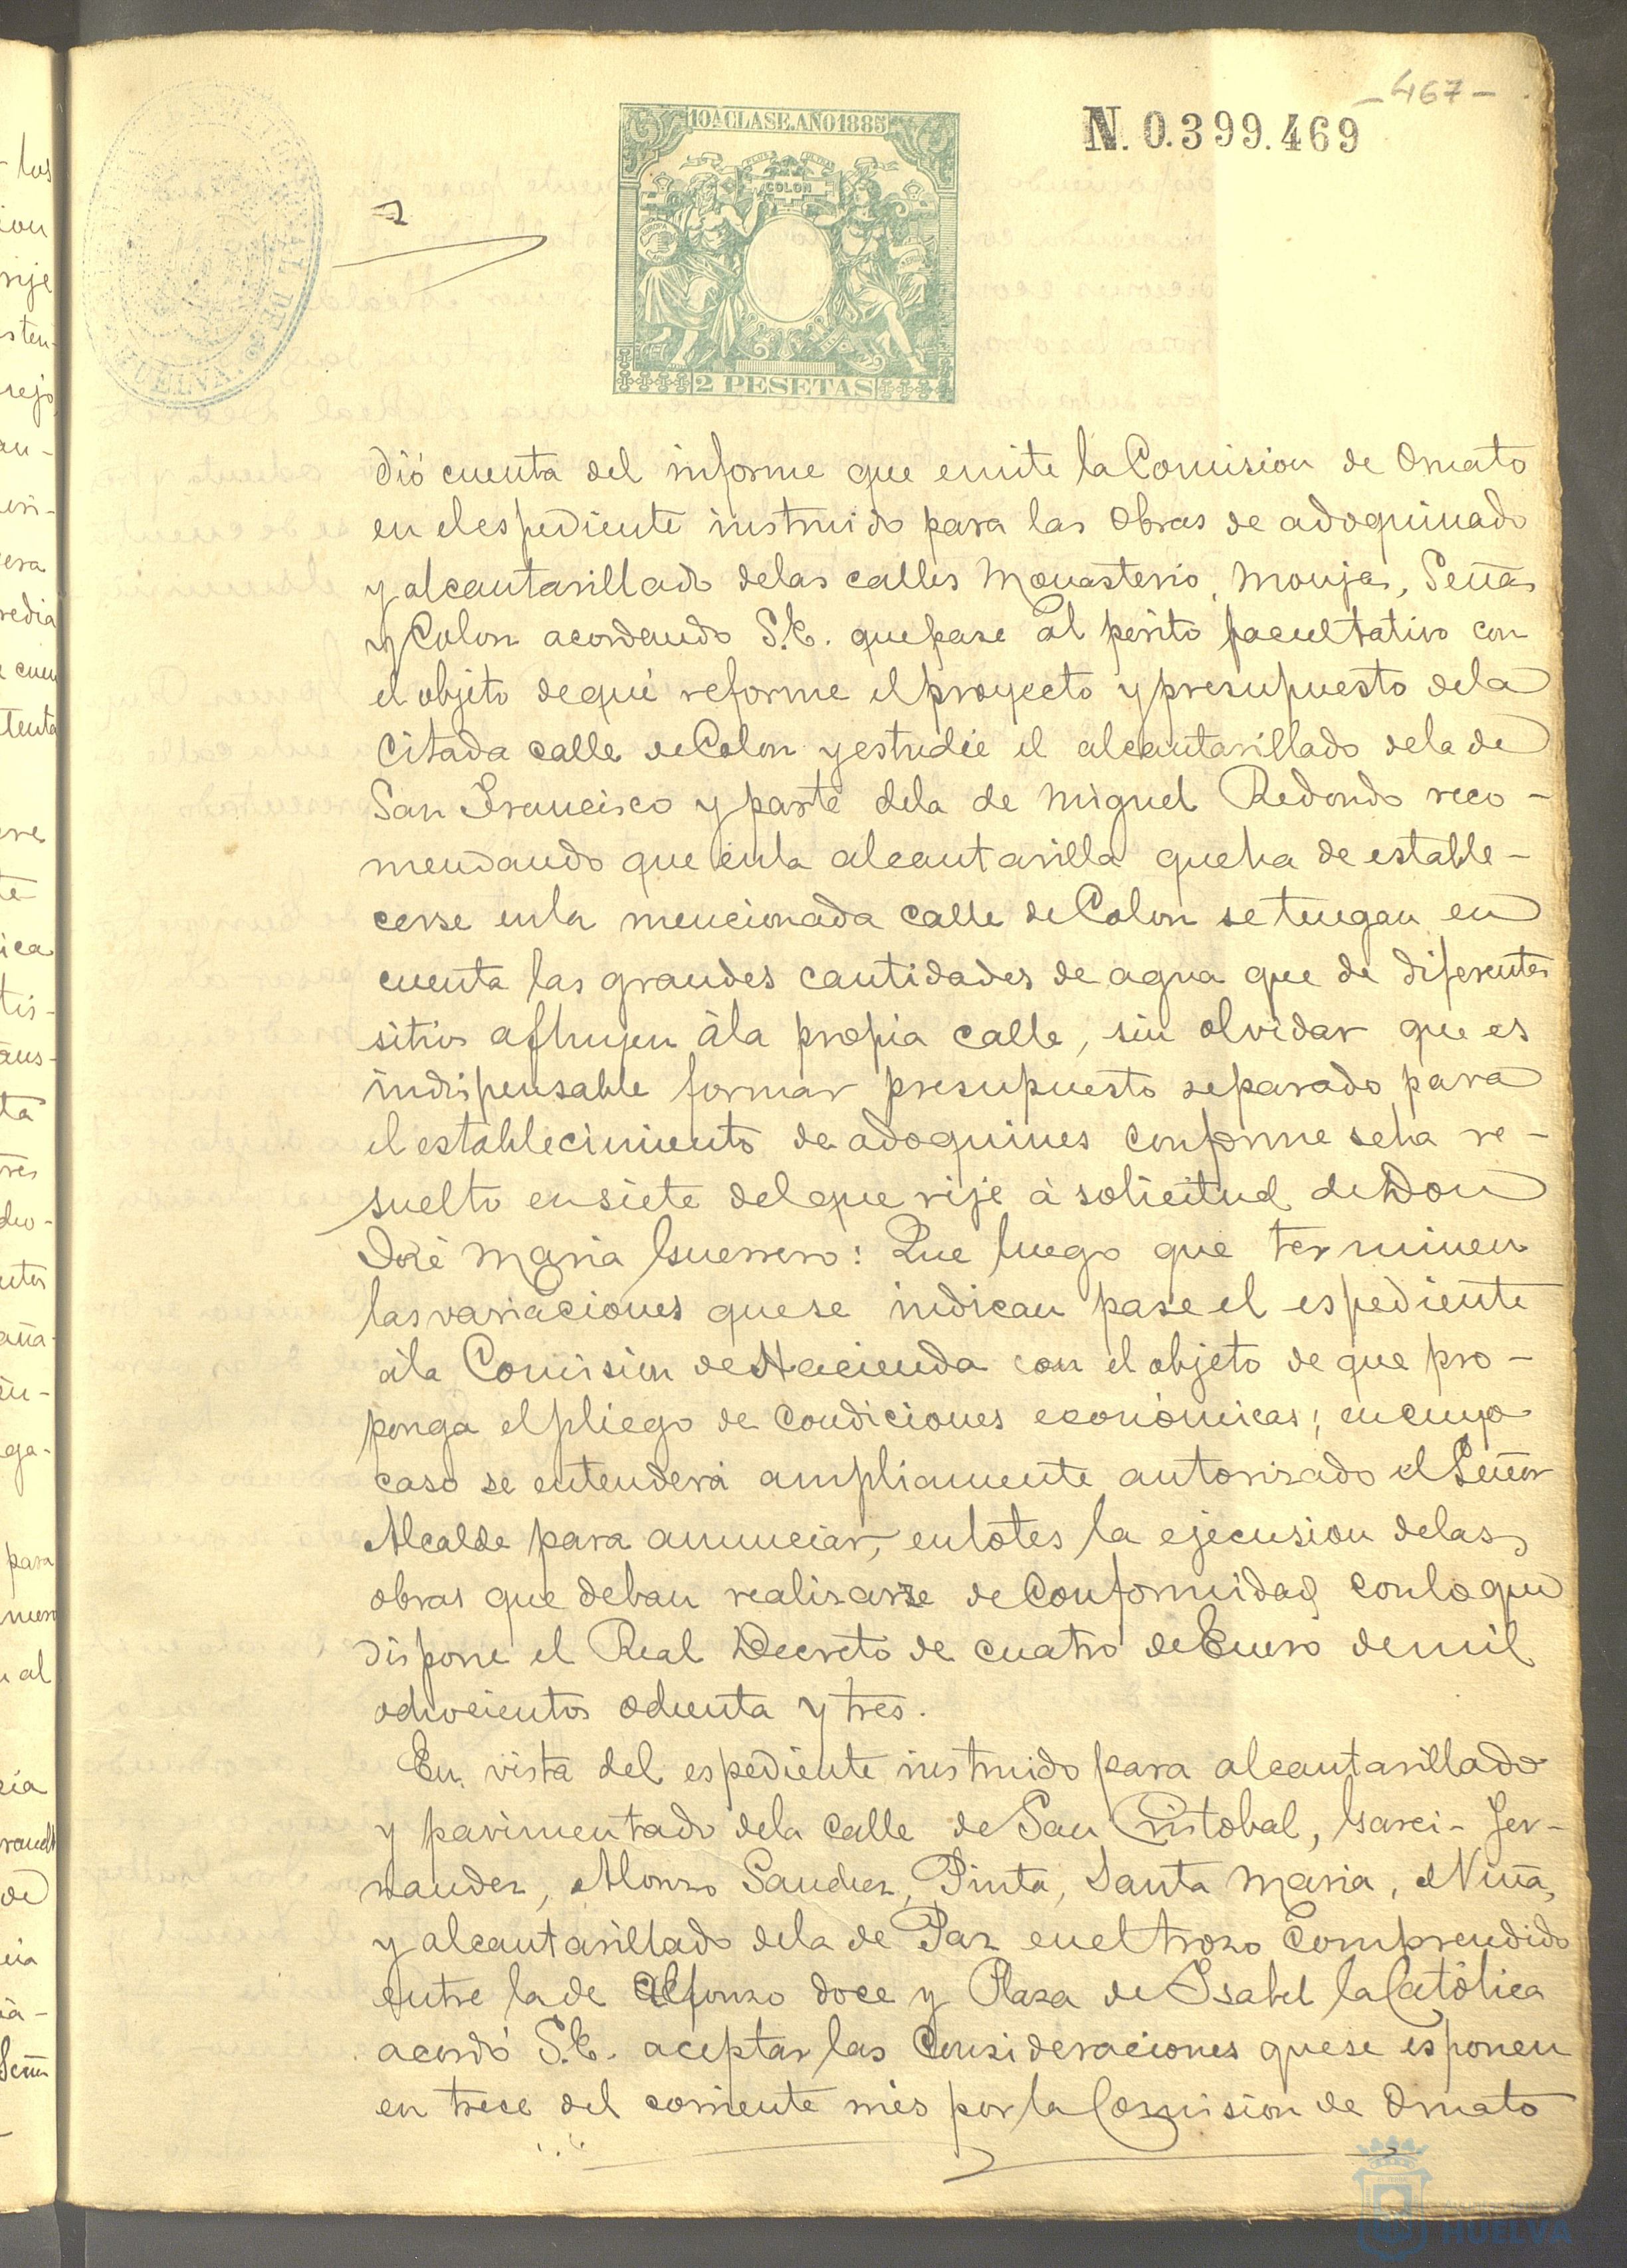 -467-
10ª CLASE. AÑO 1885
N. 0.399.469
PLUS ULTRA
COLON
EUROPA
HUELVA
2 PESETAS
dió cuenta del informe que emite la Comision de Ornato
en el espediente instruido para las obras de adoquinado
y alcantarillado delas calles Monasterio, Monjas, Señas
y Colon acordando S.E. que pase al perito facultativo con
el objeto de qué reforme el proyecto y presupuesto dela
citada calle de Colon y estudie el alcantarillado dela de
San Francisco y parte dela de Miguel Redondo reco-
mendando que enla alcantarilla que ha de estable-
cerse enla mencionada calle de Colon se tengan en
cuenta las grandes cantidades de agua que de diferentes
sitios afluyen àla propia calle, sin olvidar que es
indispensable formar presupuesto separado para
el establecimiento de adoquines conforme seha re-
suelto en siete del que rije à solicitud de Don
José Maria Guerrero: Que luego que terminen
las variaciones que se indican pase el espediente
àla Comision de Hacienda con el objeto de que pro-
ponga el pliego de condiciones económicas; en cuyo
caso se entenderá ampliamente autorisado el Señor
Alcalde para anunciar, en lotes la ejecusion delas
obras que deban realisarse de Conformidad con lo que
dispone el Real Decreto de cuatro de Enero de mil
ochocientos ochenta y tres.
En vista del espediente instruido para alcantarillado
y pavimentado dela calle de San Cristobal, Garci-Fer-
nandez, Alonso Sanchez, Pinta, Santa Maria, Niña,
y alcantarillado dela de Paz en el troso comprendido
entre la de Alfonso doce y Plasa de Isabel la Católica
acordó S.E. aceptar las consideraciones que se esponen
en trece del corriente més por la Comision de Ornato
HUELVA